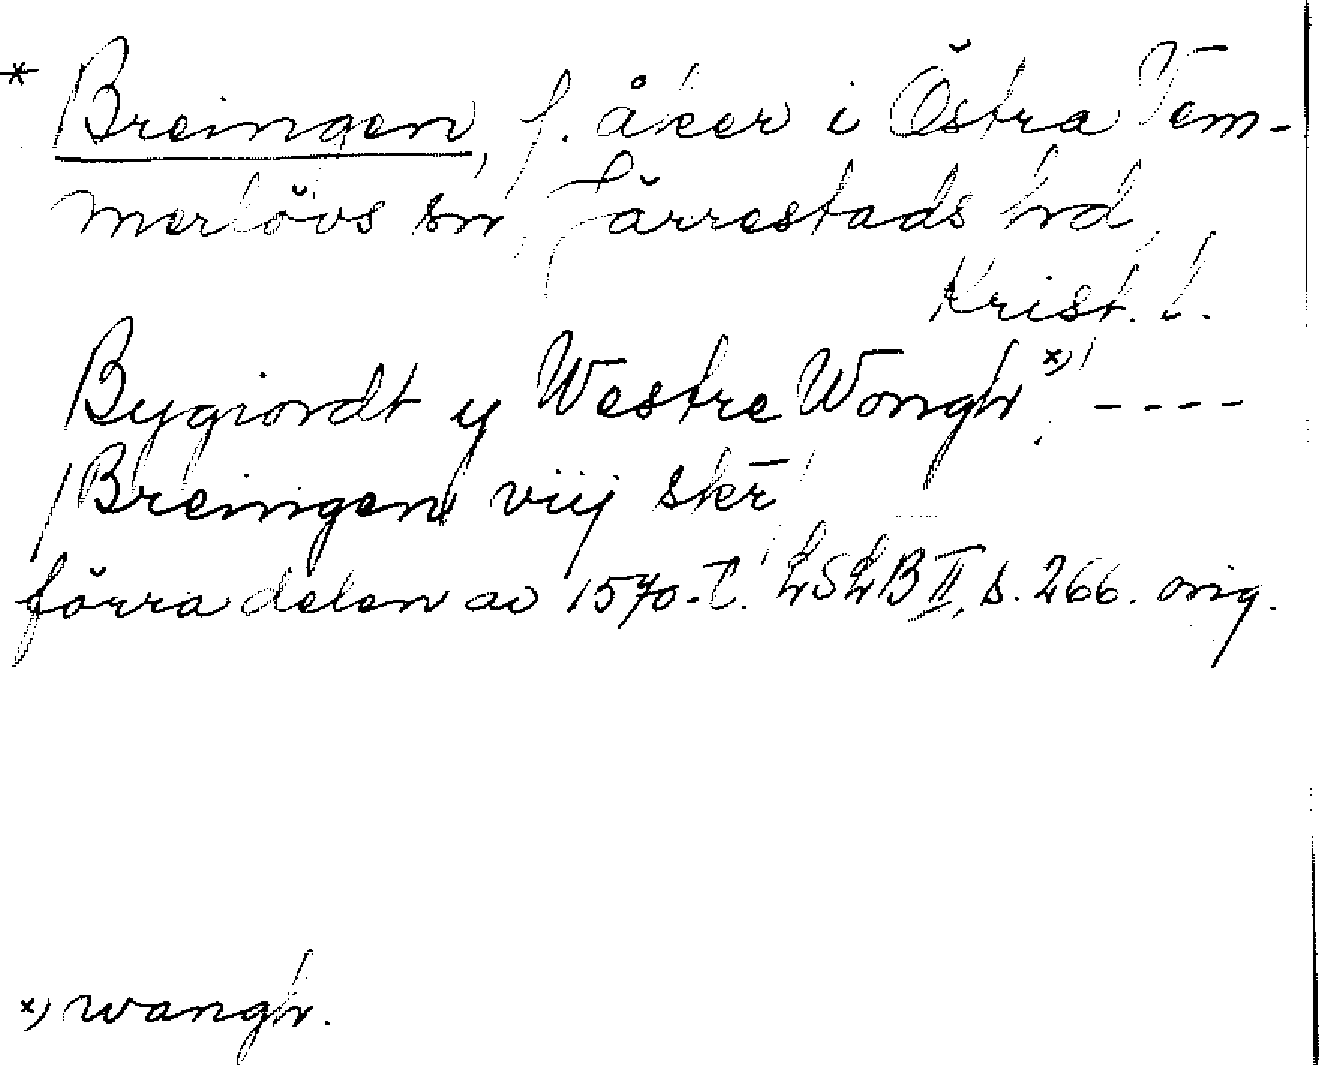 * Breingen, f. åker i Östra Tem-
merlövs sn, Järrestads hd,
Krist. l.
Bygiordt y Westre Wongh x) ----
/Breingenn viij sker
förra delen av 1570-t. LSLB II, s. 266. orig.
x) wangh.